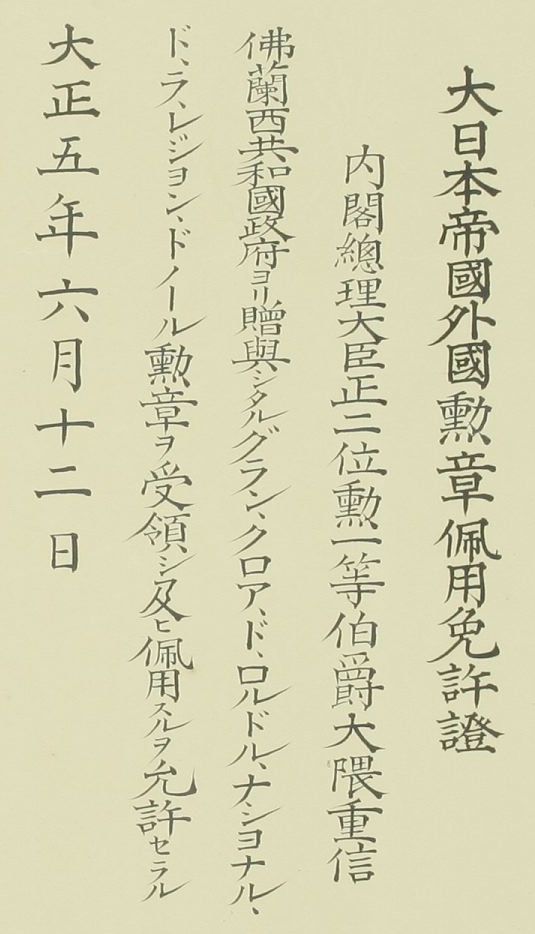 大日本帝國外國勲章佩用免許證
内閣總理大臣正二位勲一等伯爵大隈重信
佛蘭西共和國政府ヨリ贈與シタルグラン、クロア、ド、ロルドル、ナショナル、
ド、ラ、レジョン、ドノール勲章ヲ受領シ及ヒ佩用スルヲ允許セラル
大正五年六月十二日